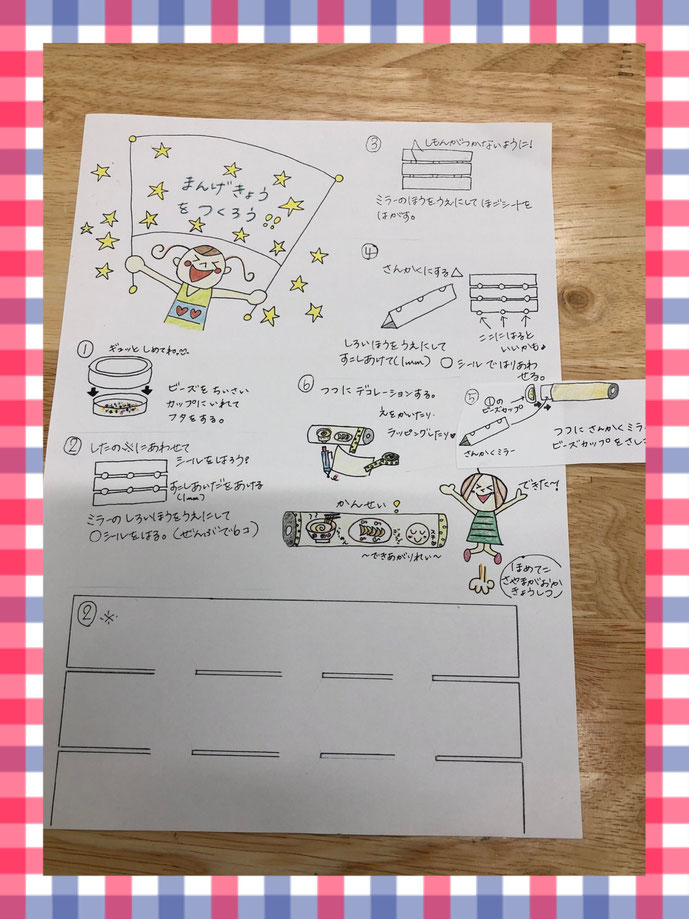 まんげきょう
をつくろう!!
① ギュッとしめてね。
ビーズをちいさい
カップにいれて
フタをする。
② したの※にあわせて
シールをはろう!
すこしあいだをあける
(1mm)
ミラーのしろいほうをうえにして
○シールをはる。(ぜんぶで6コ)
③ しもんがつかないように!
ミラーのほうをうえにしてほごシートを
はがす。
④ さんかくにする△
ここにはると
いいかも♪
しろいほうをうえにして
すこしあけて(1mm) ○シールではりあわ
せる。
⑤ ①の
ビーズカップ
さんかくミラー
つつにさんかくミラ
ビーズカップをさしこ
⑥ つつにデコレーションする。
えをかいたり
ラッピングしたり♥
かんせい!
〜できあがりれい〜
できた〜!
ほめてニ
さやまがおか
きょうしつ
② ※